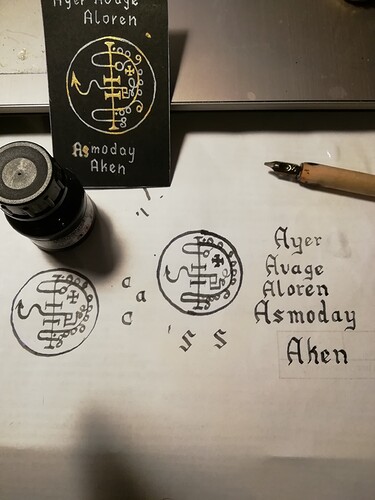 Ayer Avage
Aloren
Asmoday
Aken
c
a
c
S S
Ayer
Avage
Aloren
Asmoday
Aken